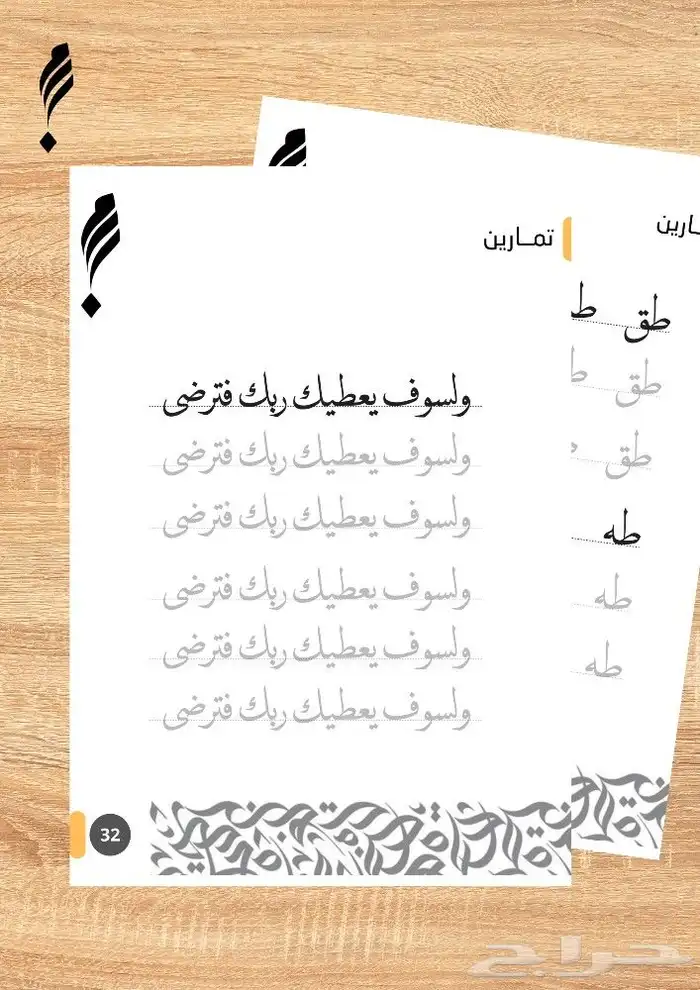 تمـارين
ولسوف يعطيك ربك فترضى
ولسوف يعطيك ربك فترضى
ولسوف يعطيك ربك فترضى
ولسوف يعطيك ربك فترضى
ولسوف يعطيك ربك فترضى
ولسوف يعطيك ربك فترضى
32
ـارين
طق ط
طق ط
طق
طه
طه
طه
حراج